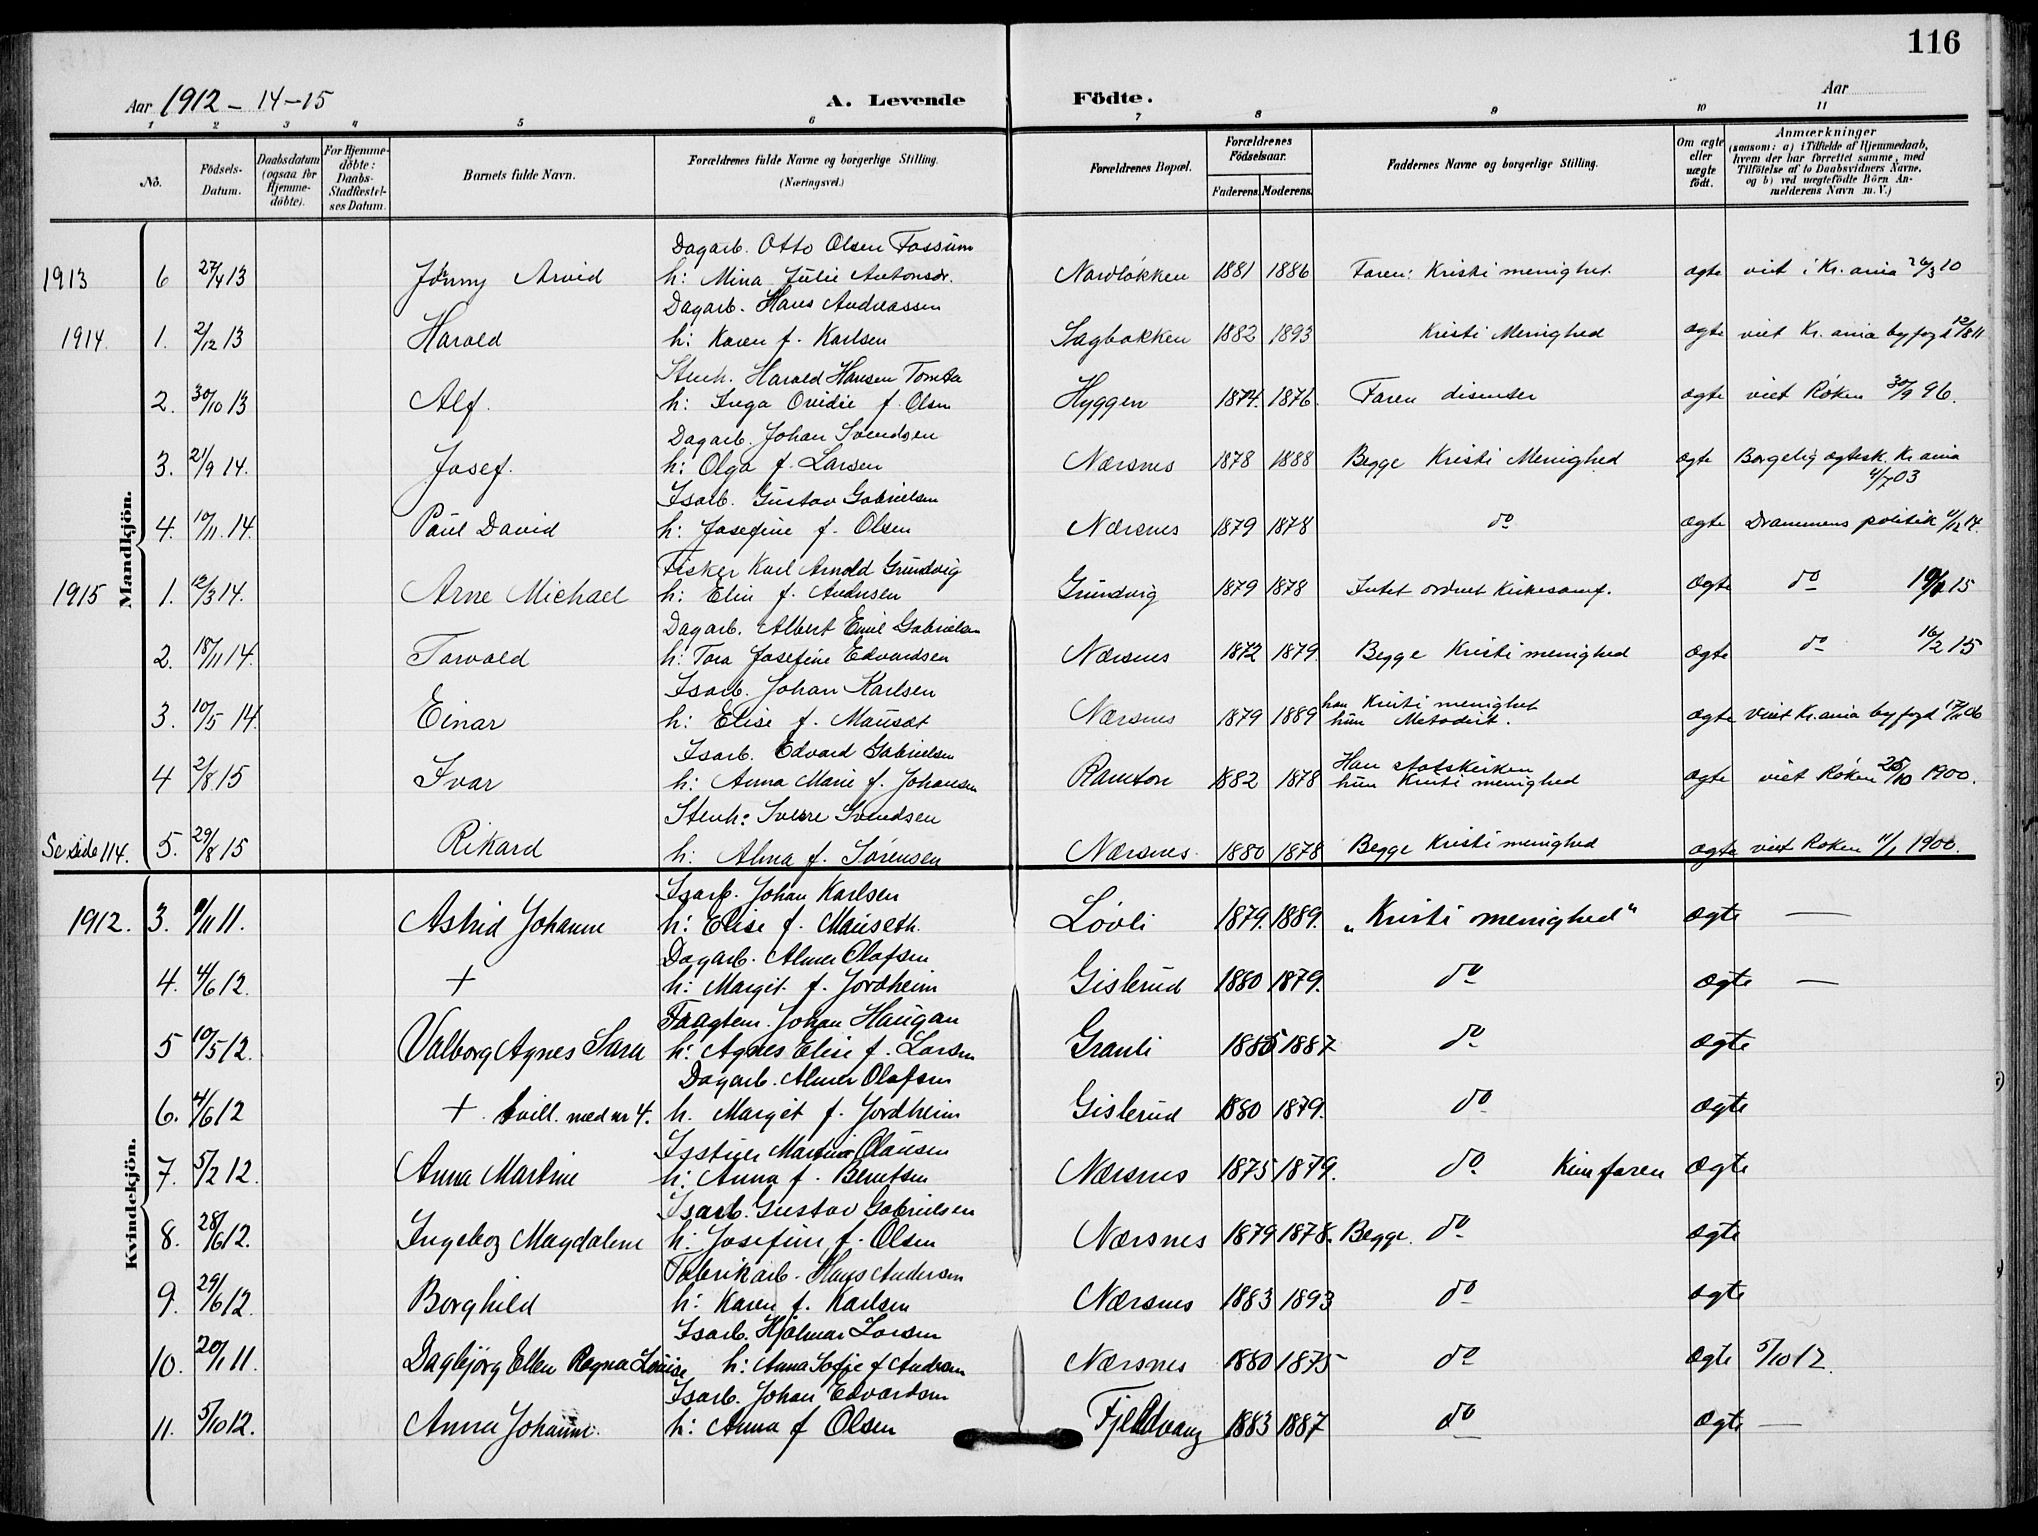 116
Aar 1912 - 14 - 15
A. Levende Födte.
Aar
1 2 3 4 5 6 7 8 9 10 11
No. Födsels-Datum. Daabsdatum (ogsaa for Hjemme-døbte). For Hjemme-døbte: Daabs-Stadfæstel-ses Datum. Barnets fulde Navn. Forældrenes fulde Navne og borgerlige Stilling. (Næringsvei.) Forældrenes Bopæl. Forældrenes Födselsaar. Faderens. Moderens. Faddernes Navne og borgerlige Stilling. Om ægte eller uægte født. Anmærkninger (saasom: a) i Tilfælde af Hjemmedaab, hvem der har forrettet samme, med Tilföielse af to Daabsvidners Navne, og b) ved uægtefödte Börn An-melderens Navn m. V.)
Mandkjön.
Dagarb. Otto Olsen Fossum
1913 6 27/4 13 Jönny Arvid h: Mina Julie Antonsdr. Nordløkken 1881 1886 Faren: Kristi menighet. ægte viet i Kr.ania 26/3 10
Dagarb. Hans Andreassen
1914. 1. 2/12 13 Harold h: Karen f. Karlsen Sagbakken 1882 1893 Kristi Menighed ægte viet Kr.ania byfogd 12/8 11
Stenh. Harald Hansen Tomta
2. 30/10 13 Alf. h: Inga Ovidie f. Olsen Hyggen 1874. 1876. Faren disenter ægte viet Røken 30/9 96.
Dagarb. Johan Svendsen
3. 21/9 14. Josef. h: Olga f. Larsen Nærsnes 1878 1888 Begge Kristi Menighed ægte Borgelig ægtesk. Kr.ania
4/7 03
Isarb. Gustav Gabrielsen
4. 10/11. 14. Paul David h: Josefine f. Olsen Nærsnes 1879 1878 do ægte Drammens politik 4/12 14.
Fisker Karl Arnold Grundvig
1915 1. 12/3 14. Arne Michael h: Elin f. Andersen Grundvig 1879 1878 Intet ordnet Kirkesamf. ægte do 15
Dagarb. Albert Emil Gabrielsen
2. 18/11 14. Torvald h: Tora Josefine Edvardsen Nærsnes 1872 1879. Begge Kristi menighed ægte do 16/2 15
Isarb. Johan Karlsen
3. 10/5 14. Einar h: Elise f. Mauset Nærsnes 1879 1889 han Kristi menighet
hun Metodist. ægte Viet Kr.ania byfogd 06
Isarb. Edvard Gabrielsen
4 2/8 15 Ivar h: Anna Marie f. Johansen Ramton 1882 1878 Han Statskirken
hun Kristi menighed ægte viet Røken 25/10 1900.
Stenh: Sverre Svendsen
Se side 114. 5. 29/8 15 Rikard h: Alma f. Sørensen Nærsnes. 1880 1878 Begge Kristi menighed ægte viet Røken 11/1 1900.
Kvindekjön.
Isarb. Johan Karlsen
1912. 3. /11 11. Astrid Johanne h: Elise f. Mauseth. Løvli 1879. 1889. „Kristi menighed" ægte —
Dagarb. Almer Olafsen
4. 4/6 12. + h: Margit f. Jordheim Gislerud 1880 1879. do ægte —
Fragtem. Johan Haugan
5 10/5 12. Valborg Agnes Sara h: Agnes Elise f. Larsen Granli 1885 1887 do ægte
Dagarb. Almer Olafsen
6. 4/6 12 + tvill. med nr 4. h. Margit f. Jordheim Gislerud 1880 1879. do ægte
Martin Olausen
7. 5/2 12. Anna Martine h: Anna f. Berntsen Nærsnes 1875 1879. do Kun faren ægte
Isarb. Gustav Gabrielsen
8. 28/6 12. Ingeborg Magdalene h: Josefine f. Olsen Nærsnes 1879 1878. Begge. do ægte
Fabrikarb. Hans Andersen
9. 29/6 12. Borghild h: Karen f. Karlsen Nærsnes 1883 1893 do ægte
Isarb. Hjalmar Larsen
10. 20/1 11. Dagbjörg Ellen Ragna Louise h: Anna Sofie f Andersen Nærsnes 1880 1875 do ægte 5/10 12.
Isarb. Johan Edvardsen
11. 5/10 12. Anna Johanne. h: Anna f Olsen Fjeldvang 1883 1887 do ægte —